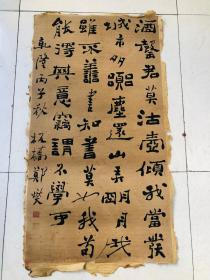 酒罄君莫沽壺傾我當發
城市多囂塵還山弄明月我
雖不善書知書莫如我苟
能其意竊謂不學可
乾隆丙子秋 板橋鄭燮